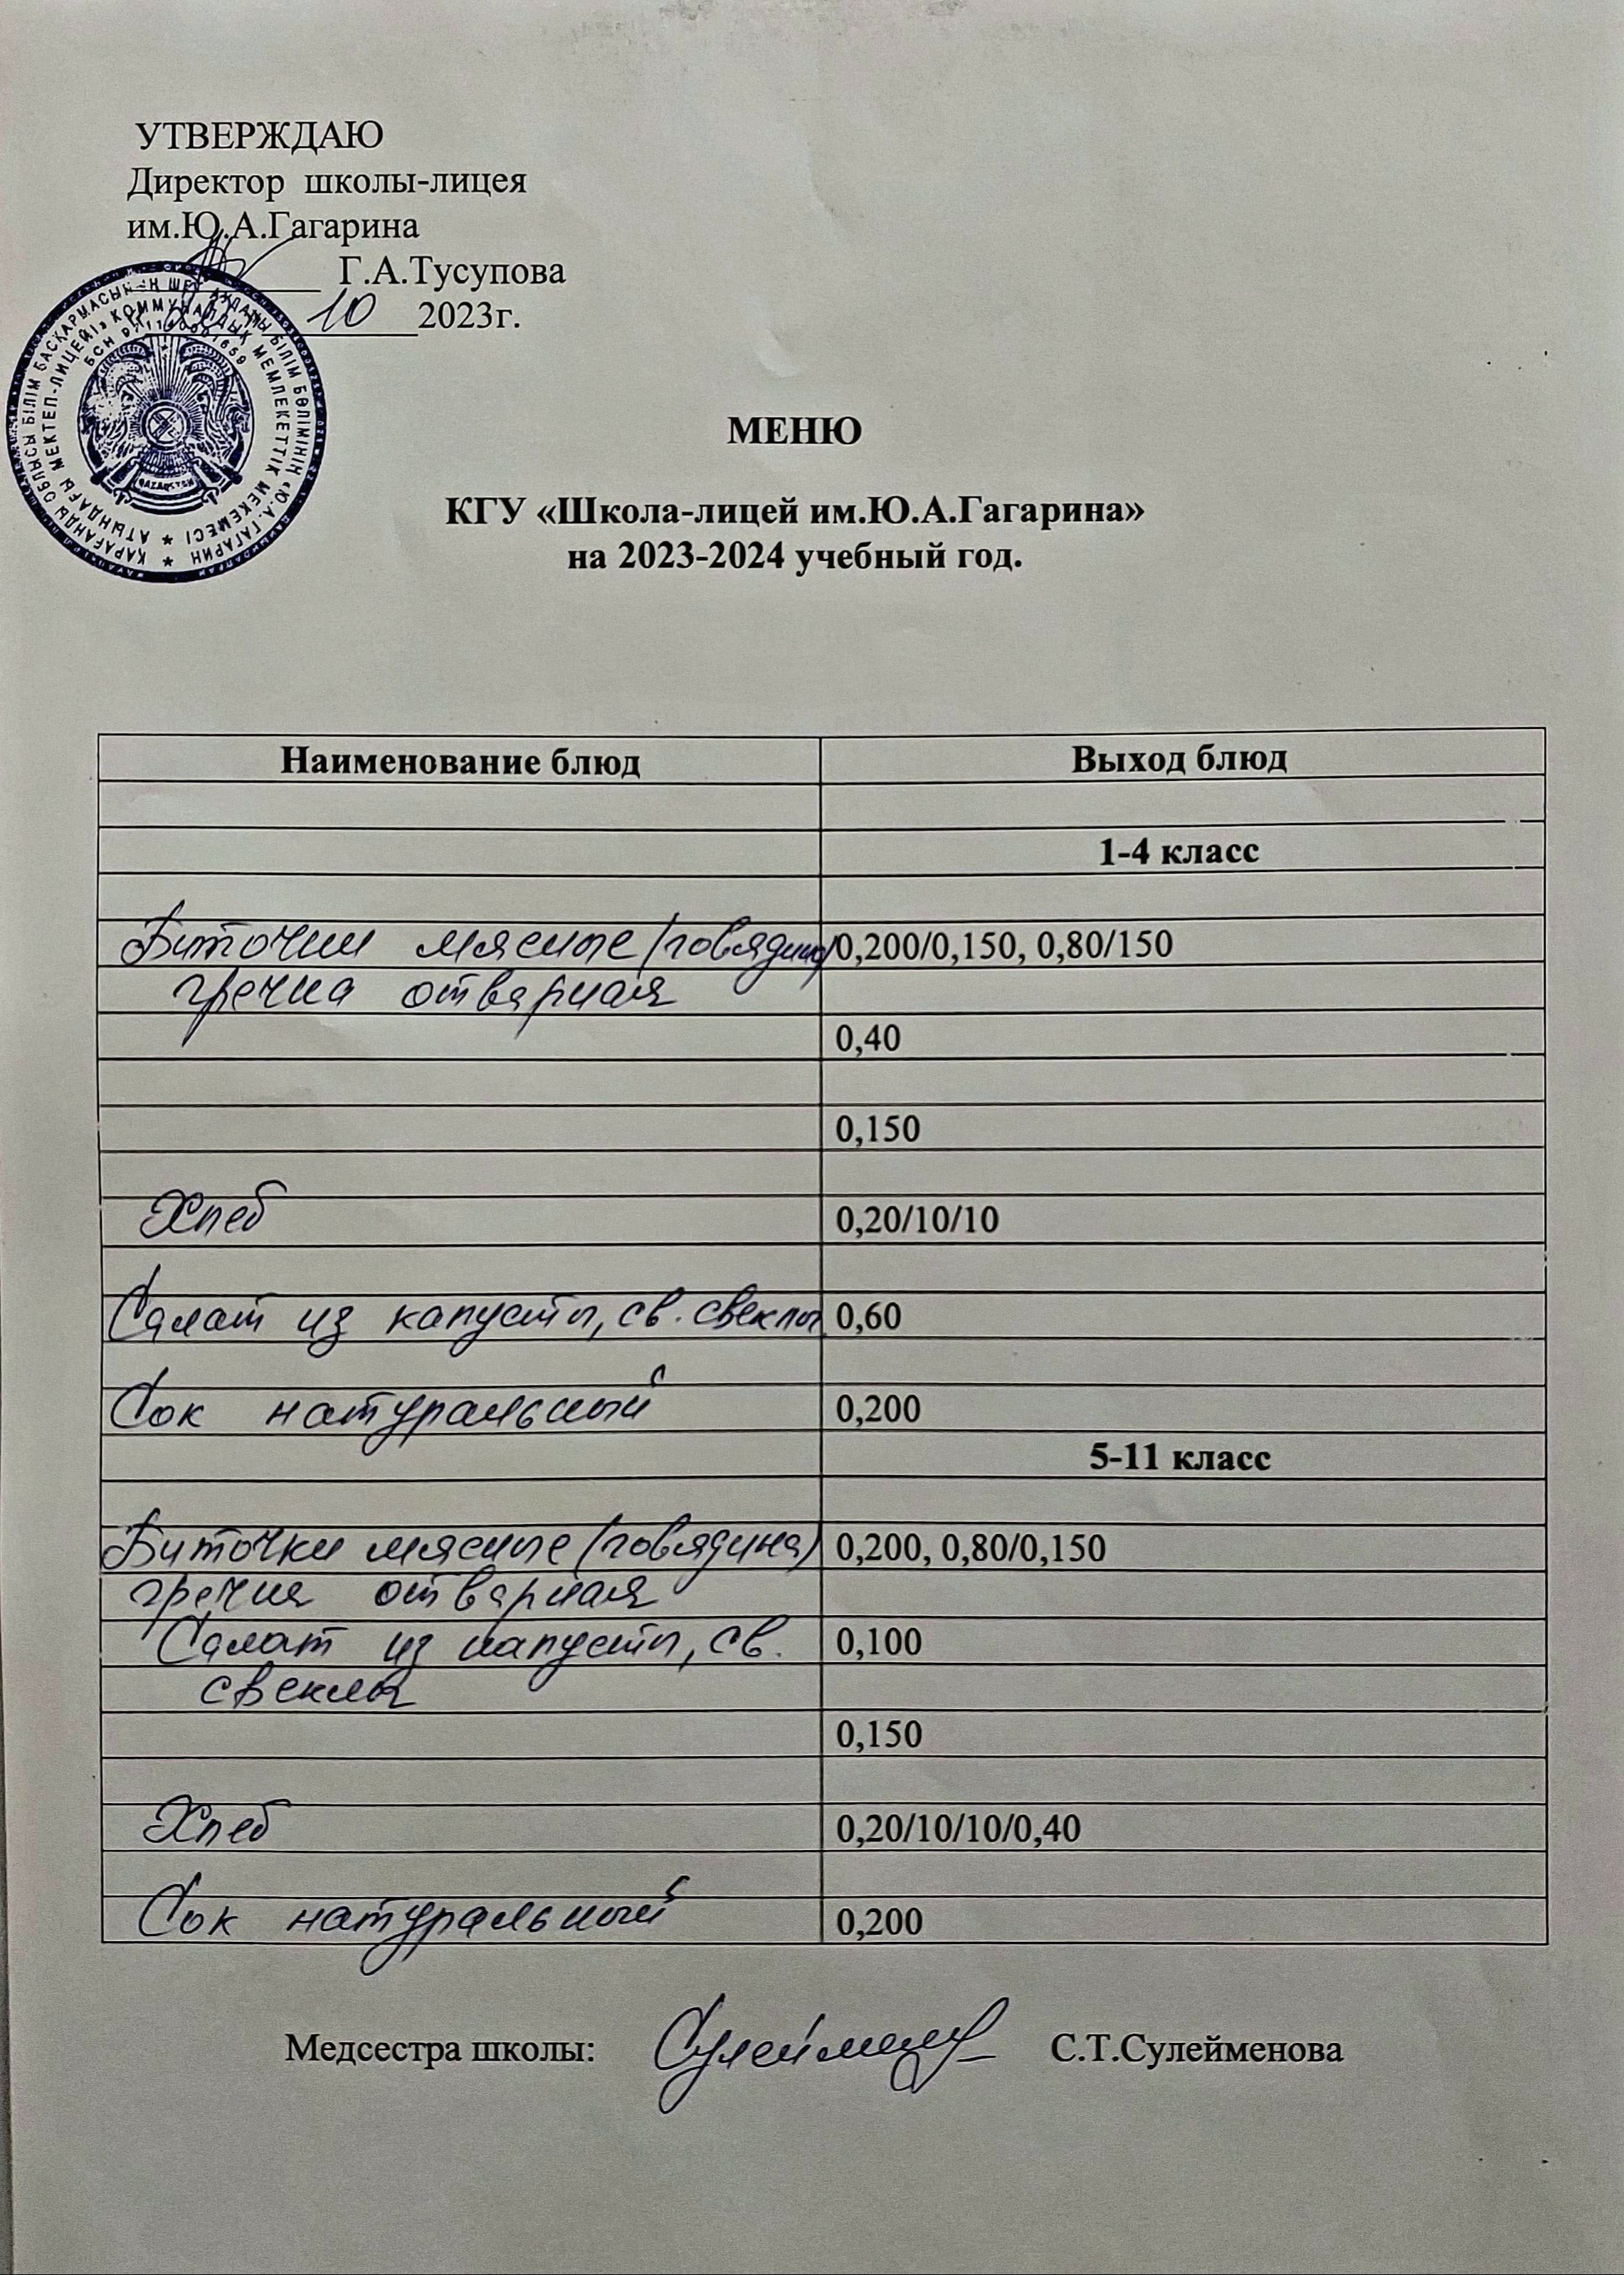 УТВЕРЖДАЮ
Директор школы-лицея
им.Ю.А.Гагарина
Г.А.Тусупова
10 2023г.
МЕНЮ
КГУ «Школа-лицей им.Ю.А.Гагарина»
на 2023-2024 учебный год.
Наименование блюд Выход блюд
1-4 класс
Биточки мясные (говядина) 0,200/0,150, 0,80/150
гречка отварная
0,40
0,150
Хлеб 0,20/10/10
Салат из капусты, св. свеклы 0,60
Сок натуральный 0,200
5-11 класс
Биточки мясные (говядина) 0,200, 0,80/0,150
гречка отварная
Салат из капусты, св. 0,100
свеклы
0,150
Хлеб 0,20/10/10/0,40
Сок натуральный 0,200
Медсестра школы: С.Т.Сулейменова